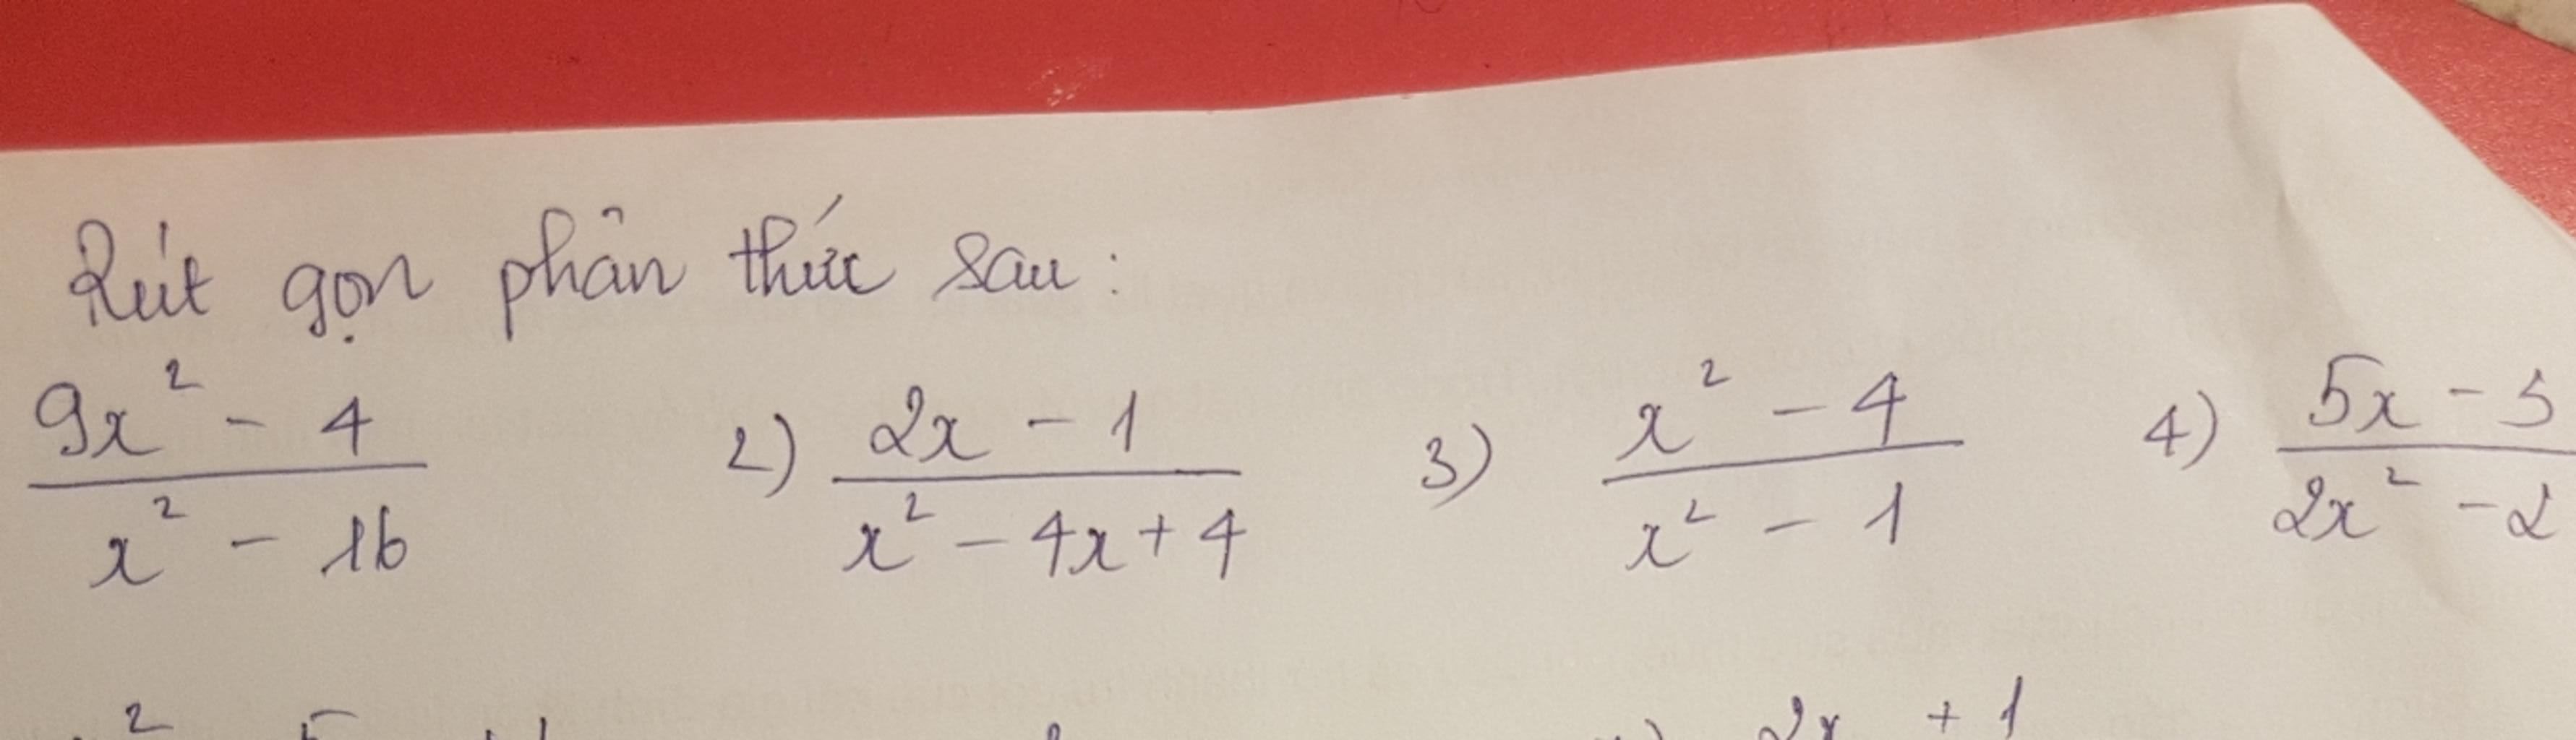 Rút gọn phân thức sau:
9x² - 4 / x² - 16 2) 2x - 1 / x² - 4x + 4 3) x² - 4 / x² - 1 4) 5x - 5 / 2x² - 2
2x + 1